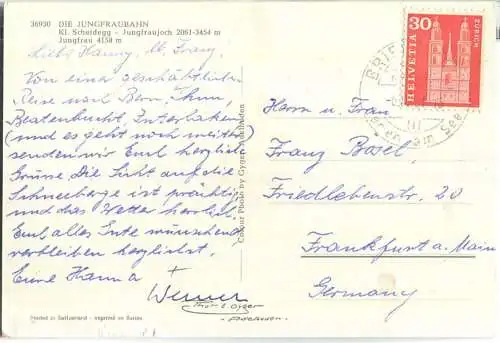 36930 DIE JUNGFRAUBAHN
Kl. Scheidegg - Jungfraujoch 2061-3454 m
Jungfrau 4158 m
Liebe Hanny, lb. Franz.
Von einer geschäftlichen
Reise nach Bern, Thun,
Beatenbucht, Interlaken
(und es geht noch weiter)
senden wir Euch herzliche
Grüsse. Die Sicht auf die
Schneeberge ist prächtig
und das Wetter herrlich.
Euch alles Gute wünschend
verbleiben herzlichst
Eure Hanna
+
Werner
Thun
Printed in Switzerland - Imprimé en Suisse
Colour Photo by Gyger, Adelboden
30
HELVETIA
ZÜRICH
Herrn u. Frau
Franz Bosel,
Friedlebenstr. 20
Frankfurt a. Main
Germany